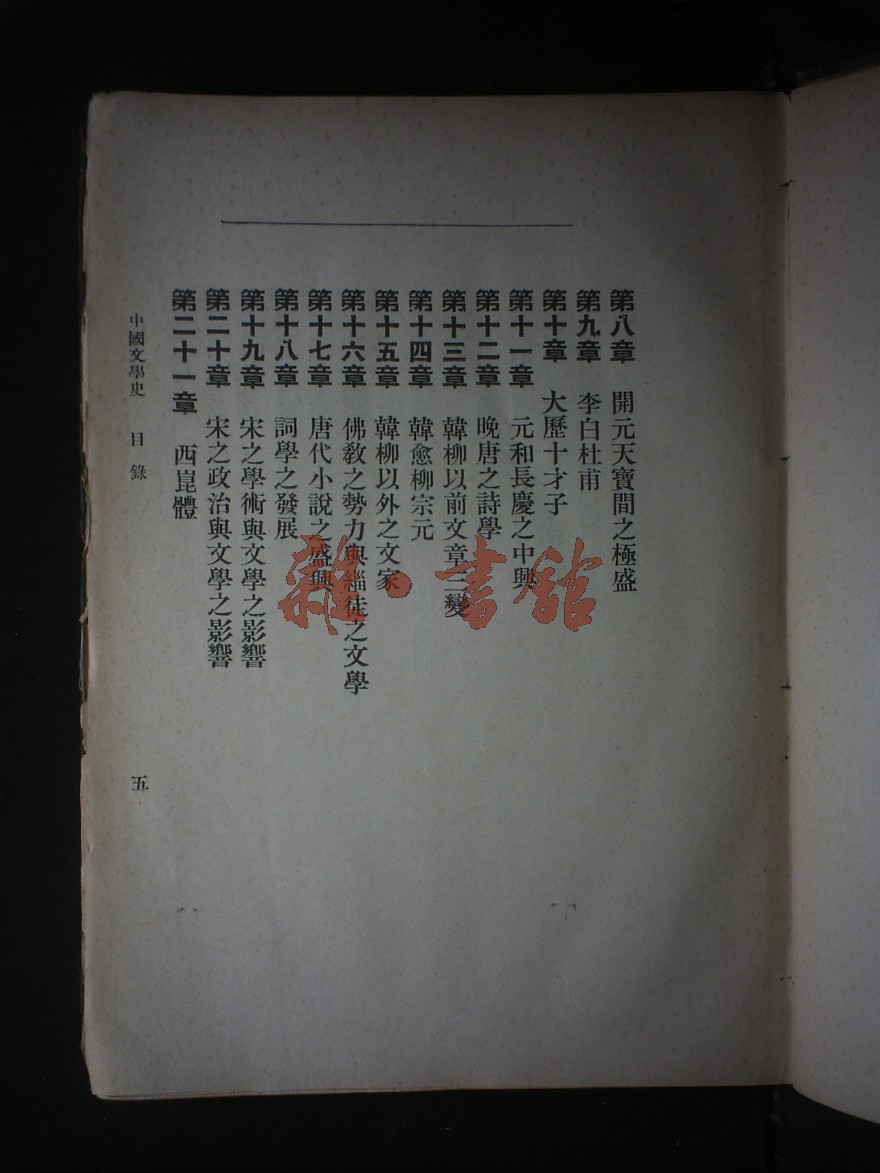 第八章 開元天寶間之極盛
第九章 李白杜甫
第十章 大歷十才子
第十一章 元和長慶之中興
第十二章 晚唐之詩學
第十三章 韓柳以前文章三變
第十四章 韓愈柳宗元
第十五章 韓柳以外之文家
第十六章 佛敎之勢力與緇徒之文學
第十七章 唐代小說之盛興
第十八章 詞學之發展
第十九章 宋之學術與文學之影響
第二十章 宋之政治與文學之影響
第二十一章 西崑體
中國文學史 目錄 五
雜·書館